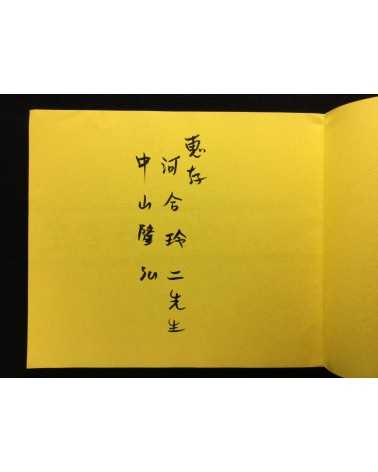 恵存
河合玲二先生
中山隆弘